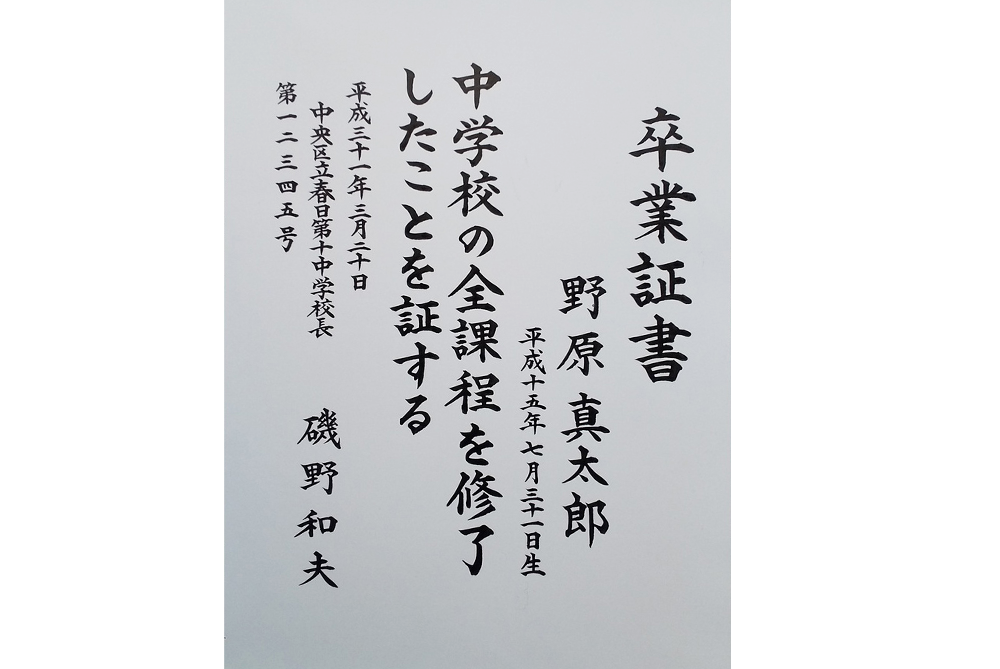 卒業証書
野原真太郎
平成十五年七月三十一日生
中学校の全課程を修了
したことを証する
平成三十一年三月二十日
中央区立春日第十中学校長
磯野和夫
第一二三四五号